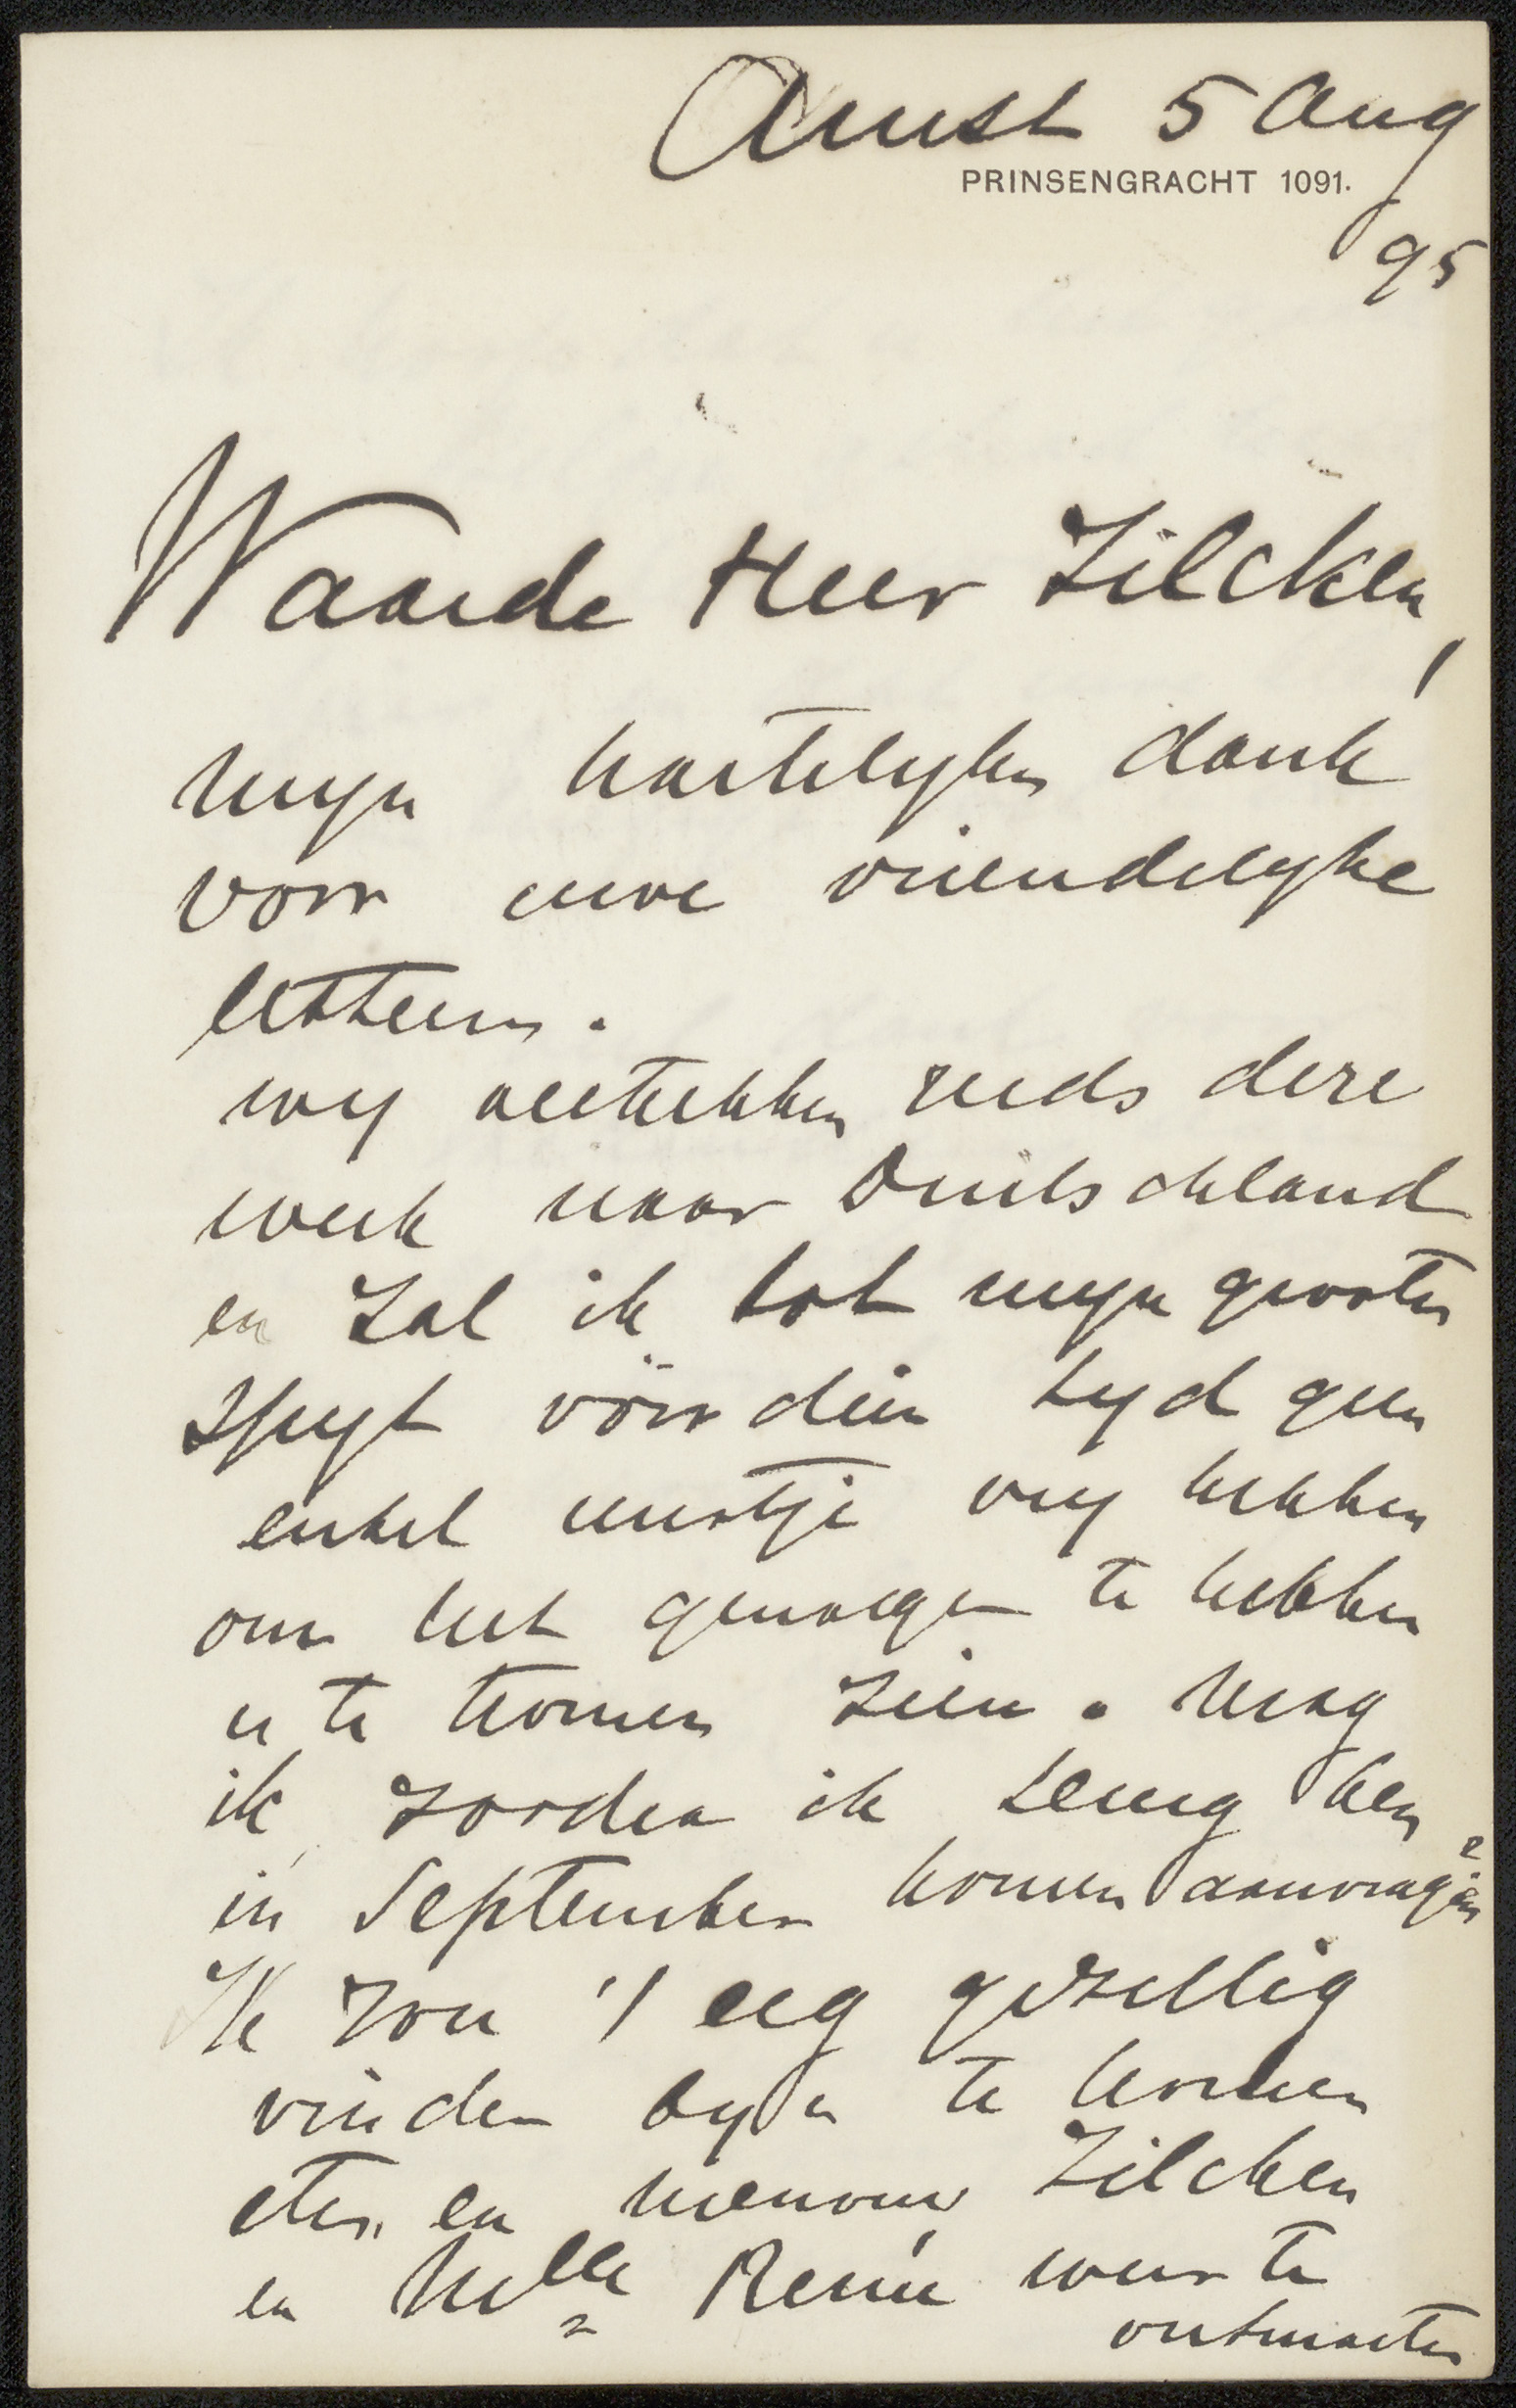 Amst 5 Aug
PRINSENGRACHT 1091.
95
Waarde Heer Zilcken,
Mijn hartelijken dank
voor uwe vriendelijke
letteren.
wij vertrekken reeds deze
week naar Duitschland
en zal ik tot mijn grooten
spijt vóór dien tijd geen
enkel uurtje vrij hebben
om het genoegen te hebben
u te komen zien. Mag
ik zoodra ik terug ben
in September komen aanvragen?
Ik zou 't erg gezellig
vinden bij u te komen
eten en mevrouw Zilcken
en Mlle Renée weer te
ontmoeten